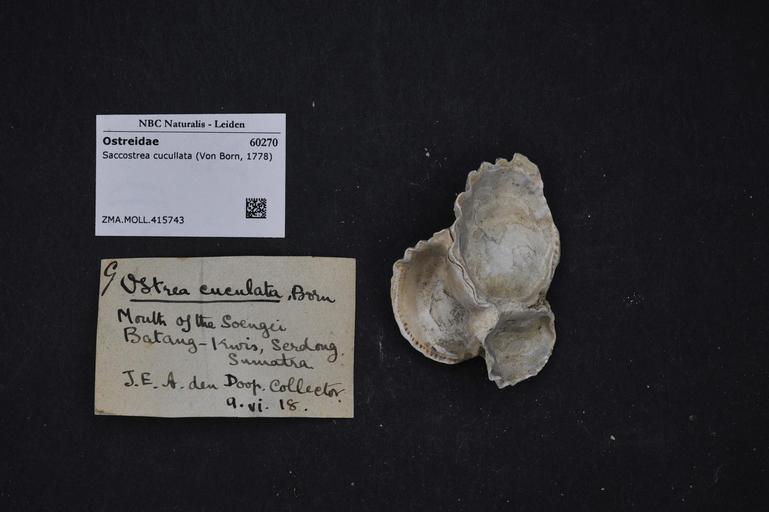 NBC Naturalis - Leiden
Ostreidae 60270
Saccostrea cucullata (Von Born, 1778)
ZMA.MOLL.415743
G
Ostrea cuculata, Born
Mouth of the Soengei
Batang-Kwis, Serdong.
Sumatra.
J.E.A. den Doop. Collector.
9.vi.18.